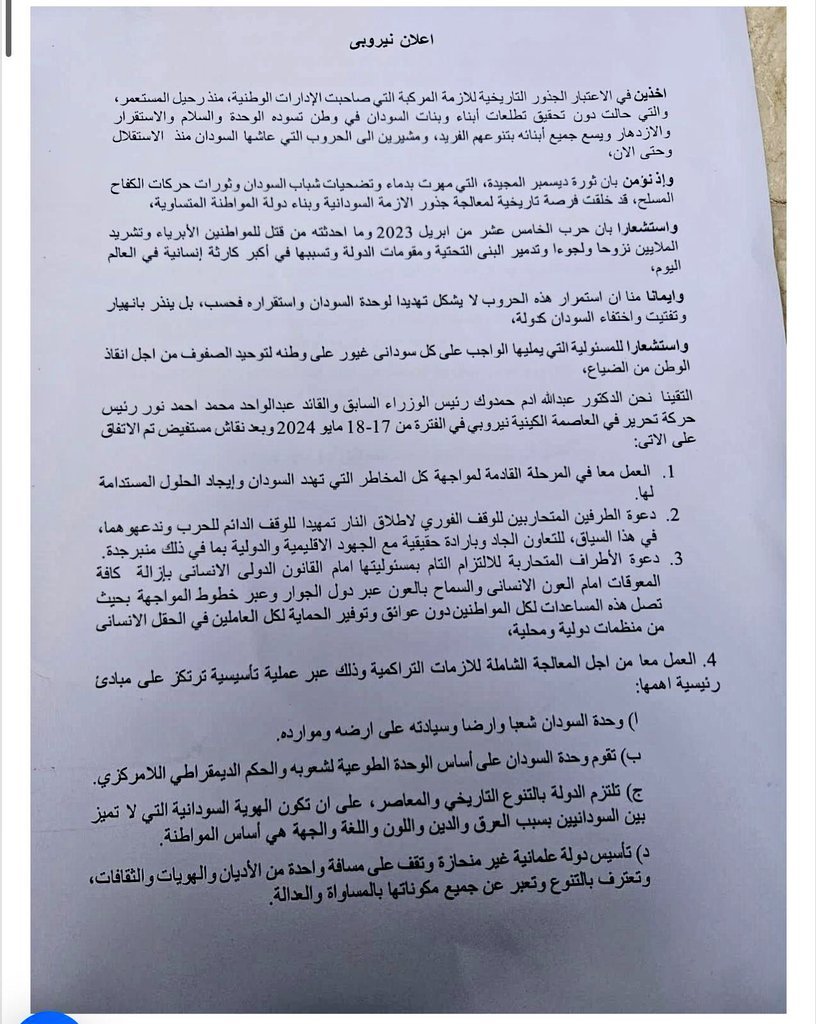 اعلان نيروبى
اخذين في الاعتبار الجذور التاريخية للازمة المركبة التي صاحبت الإدارات الوطنية، منذ رحيل المستعمر،
والتي حالت دون تحقيق تطلعات أبناء وبنات السودان في وطن تسوده الوحدة والسلام والاستقرار
والازدهار ويسع جميع أبنائه بتنوعهم الفريد، ومشيرين الى الحروب التي عاشها السودان منذ الاستقلال
وحتى الان،
وإذ نؤمن بان ثورة ديسمبر المجيدة، التي مهرت بدماء وتضحيات شباب السودان وثورات حركات الكفاح
المسلح، قد خلقت فرصة تاريخية لمعالجة جذور الازمة السودانية وبناء دولة المواطنة المتساوية،
واستشعارا بان حرب الخامس عشر من ابريل 2023 وما احدثته من قتل للمواطنين الأبرياء وتشريد
الملايين نزوحا ولجوءا وتدمير البنى التحتية ومقومات الدولة وتسببها في أكبر كارثة إنسانية في العالم
اليوم،
وايمانا منا ان استمرار هذه الحروب لا يشكل تهديدا لوحدة السودان واستقراره فحسب، بل ينذر بانهيار
وتفتيت واختفاء السودان كدولة،
واستشعارا للمسئولية التي يمليها الواجب على كل سودانى غيور على وطنه لتوحيد الصفوف من اجل انقاذ
الوطن من الضياع،
التقينا نحن الدكتور عبدالله ادم حمدوك رئيس الوزراء السابق والقائد عبدالواحد محمد احمد نور رئيس
حركة تحرير في العاصمة الكينية نيروبي في الفترة من 17-18 مايو 2024 وبعد نقاش مستفيض تم الاتفاق
على الاتى:
1. العمل معا في المرحلة القادمة لمواجهة كل المخاطر التي تهدد السودان وإيجاد الحلول المستدامة
لها.
2. دعوة الطرفين المتحاربين للوقف الفوري لاطلاق النار تمهيدا للوقف الدائم للحرب وندعوهما،
في هذا السياق، للتعاون الجاد وبارادة حقيقية مع الجهود الاقليمية والدولية بما في ذلك منبرجدة.
3. دعوة الأطراف المتحاربة للالتزام التام بمسئوليتها امام القانون الدولى الانسانى بإزالة كافة
المعوقات امام العون الانسانى والسماح بالعون عبر دول الجوار وعبر خطوط المواجهة بحيث
تصل هذه المساعدات لكل المواطنين دون عوائق وتوفير الحماية لكل العاملين في الحقل الانسانى
من منظمات دولية ومحلية،
4. العمل معا من اجل المعالجة الشاملة للازمات التراكمية وذلك عبر عملية تأسيسية ترتكز على مبادئ
رئيسية اهمها:
ا) وحدة السودان شعبا وارضا وسيادته على ارضه وموارده.
ب) تقوم وحدة السودان على أساس الوحدة الطوعية لشعوبه والحكم الديمقراطي اللامركزي.
ج) تلتزم الدولة بالتنوع التاريخي والمعاصر، على ان تكون الهوية السودانية التي لا تميز
بين السودانيين بسبب العرق والدين واللون واللغة والجهة هي أساس المواطنة.
د) تأسيس دولة علمانية غير منحازة وتقف على مسافة واحدة من الأديان والهويات والثقافات،
وتعترف بالتنوع وتعبر عن جميع مكوناتها بالمساواة والعدالة.